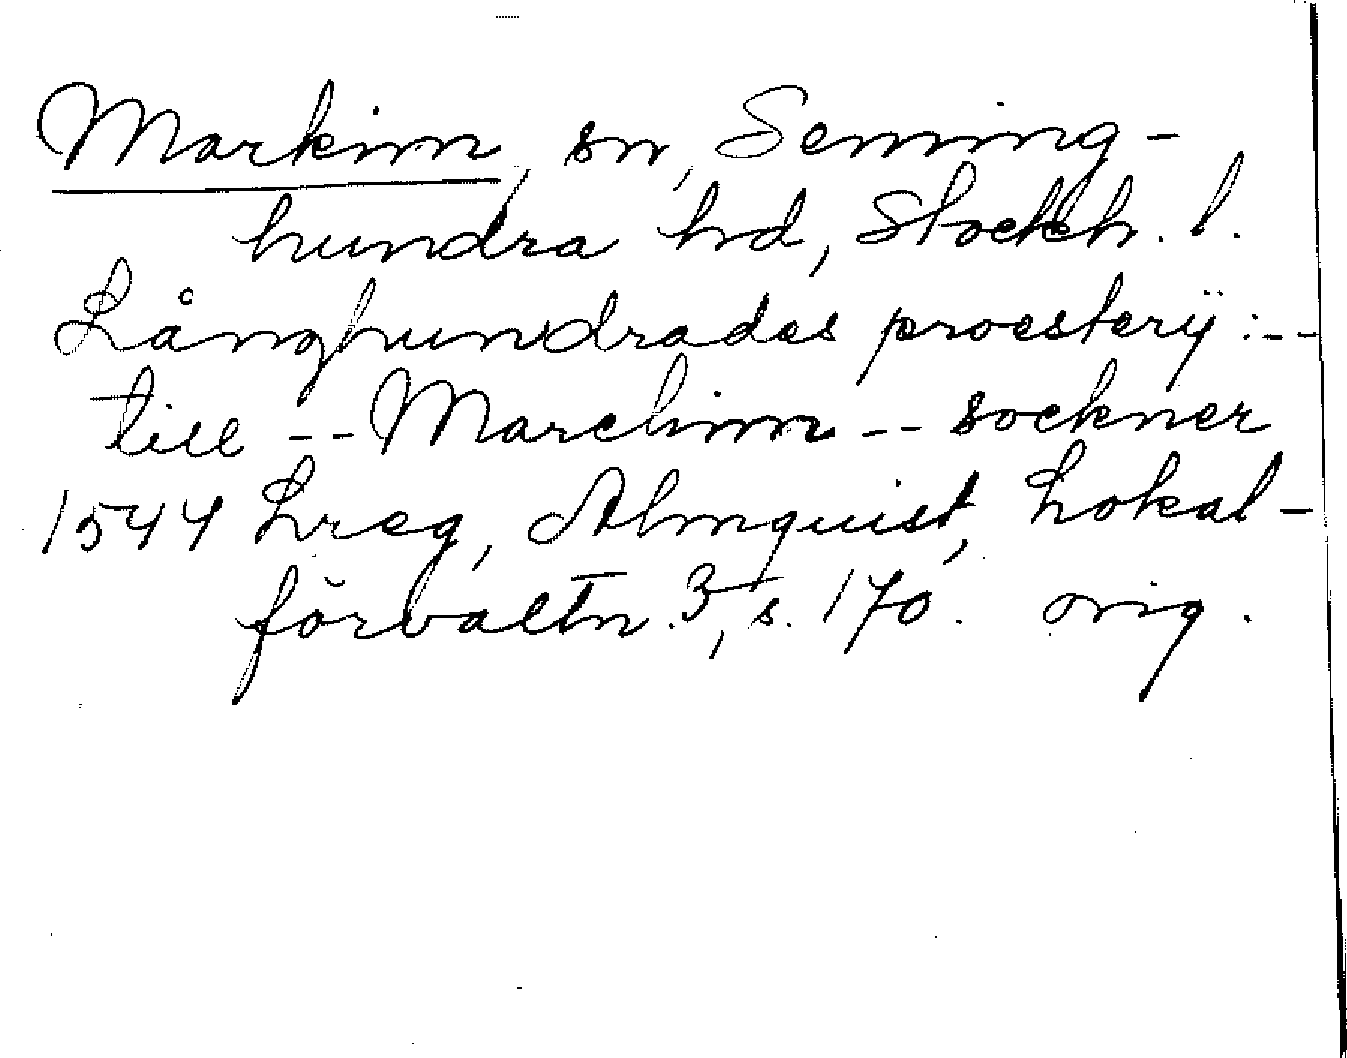 Markim, sn, Seming-
hundra hd, Stockh. l.
Långhundrades proesterij :--
till -- Marchim -- sockner
1544 Lreg, Almquist, Lokal-
förvaltn. 3, s. 170. orig.